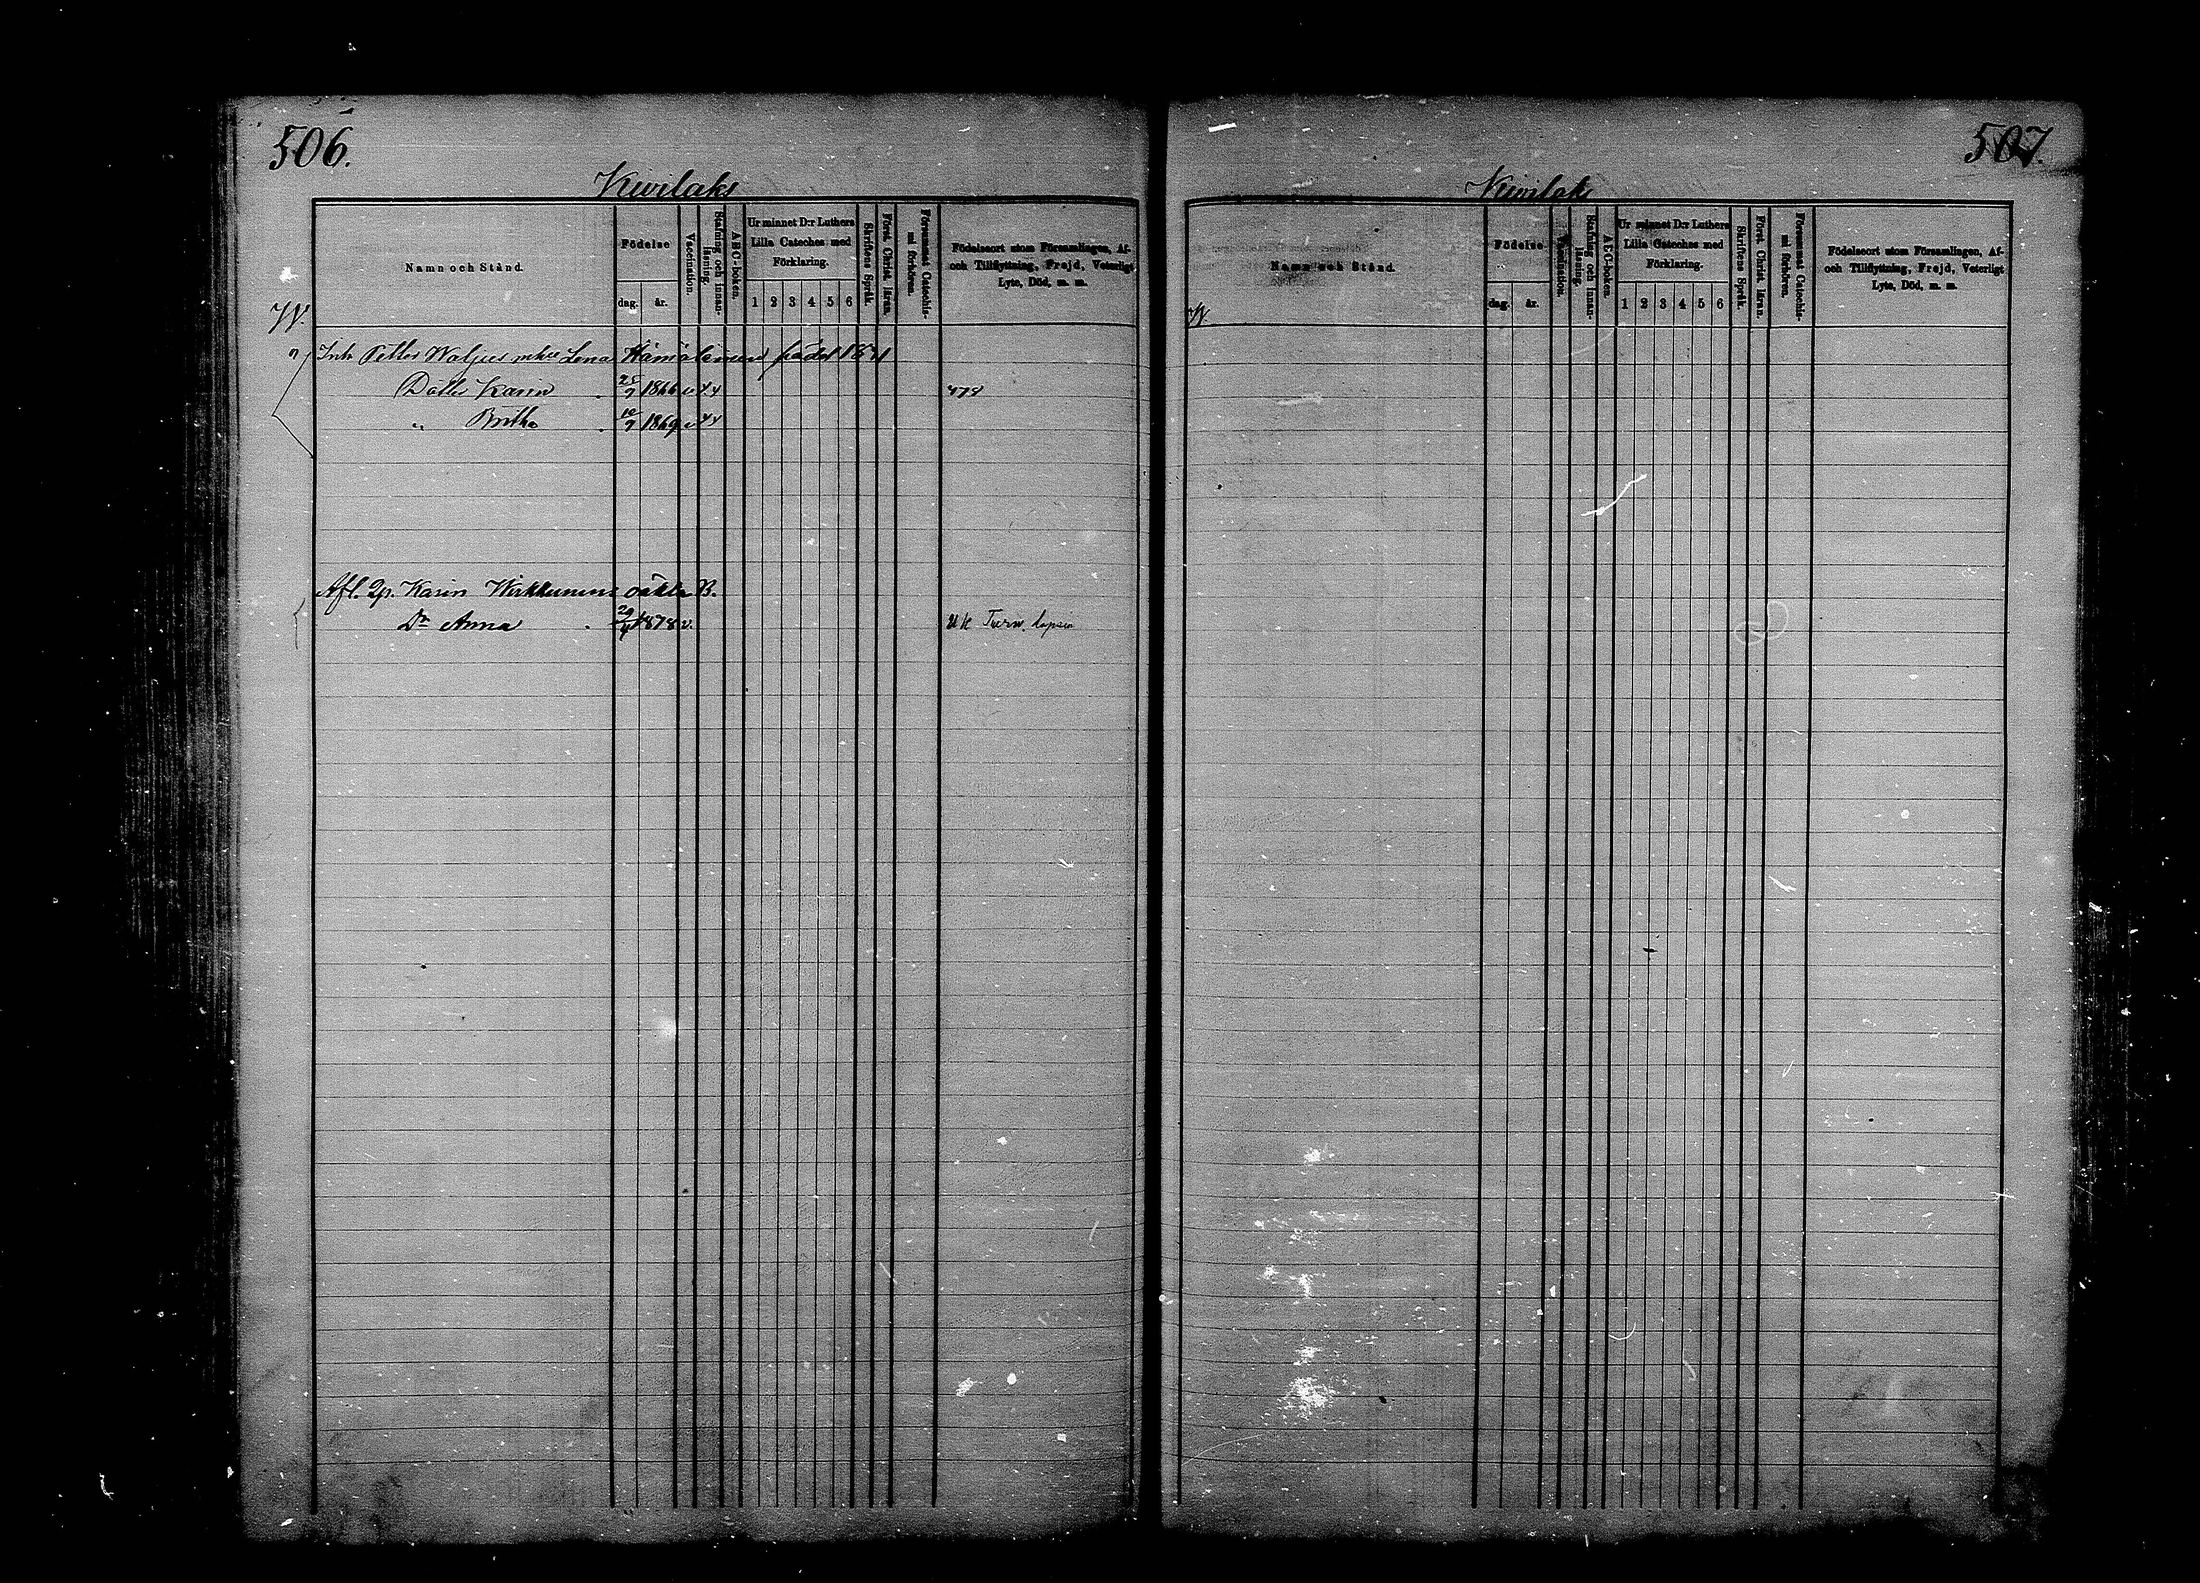 506.
Kivilaks
Namn och Stånd.
Födelse
dag. år.
Vaccination.
Stafning och innan-läsning.
ABC-boken.
Ur minnet D:r Luthers Lilla Cateches med Förklaring.
1 2 3 4 5 6
Skriftens Språk.
Först. Christ. läran.
Försummat Catechis-mi förhören.
Födelseort utom Församlingen, Af- och Tillflyttning, Frejd, Veterligt Lyte, Död, m. m.
W.
Inh Petter Waljus Lena Hämäläinen födel
Dotter Karin 25/7 1866 v x x 478
" Britha 10/9 1869 v x x
Afl. Karin Wirkkunens oäkta B.
Dr Anna 29/4 1878 v.
507.
Kivilaks
Namn och Stånd.
Födelse
dag. år.
Vaccination.
Stafning och innan-läsning.
ABC-boken.
Ur minnet D:r Luthers Lilla Cateches med Förklaring.
1 2 3 4 5 6
Skriftens Språk.
Först. Christ. läran.
Försummat Catechis-mi förhören.
Födelseort utom Församlingen, Af- och Tillflyttning, Frejd, Veterligt Lyte, Död, m. m.
W.